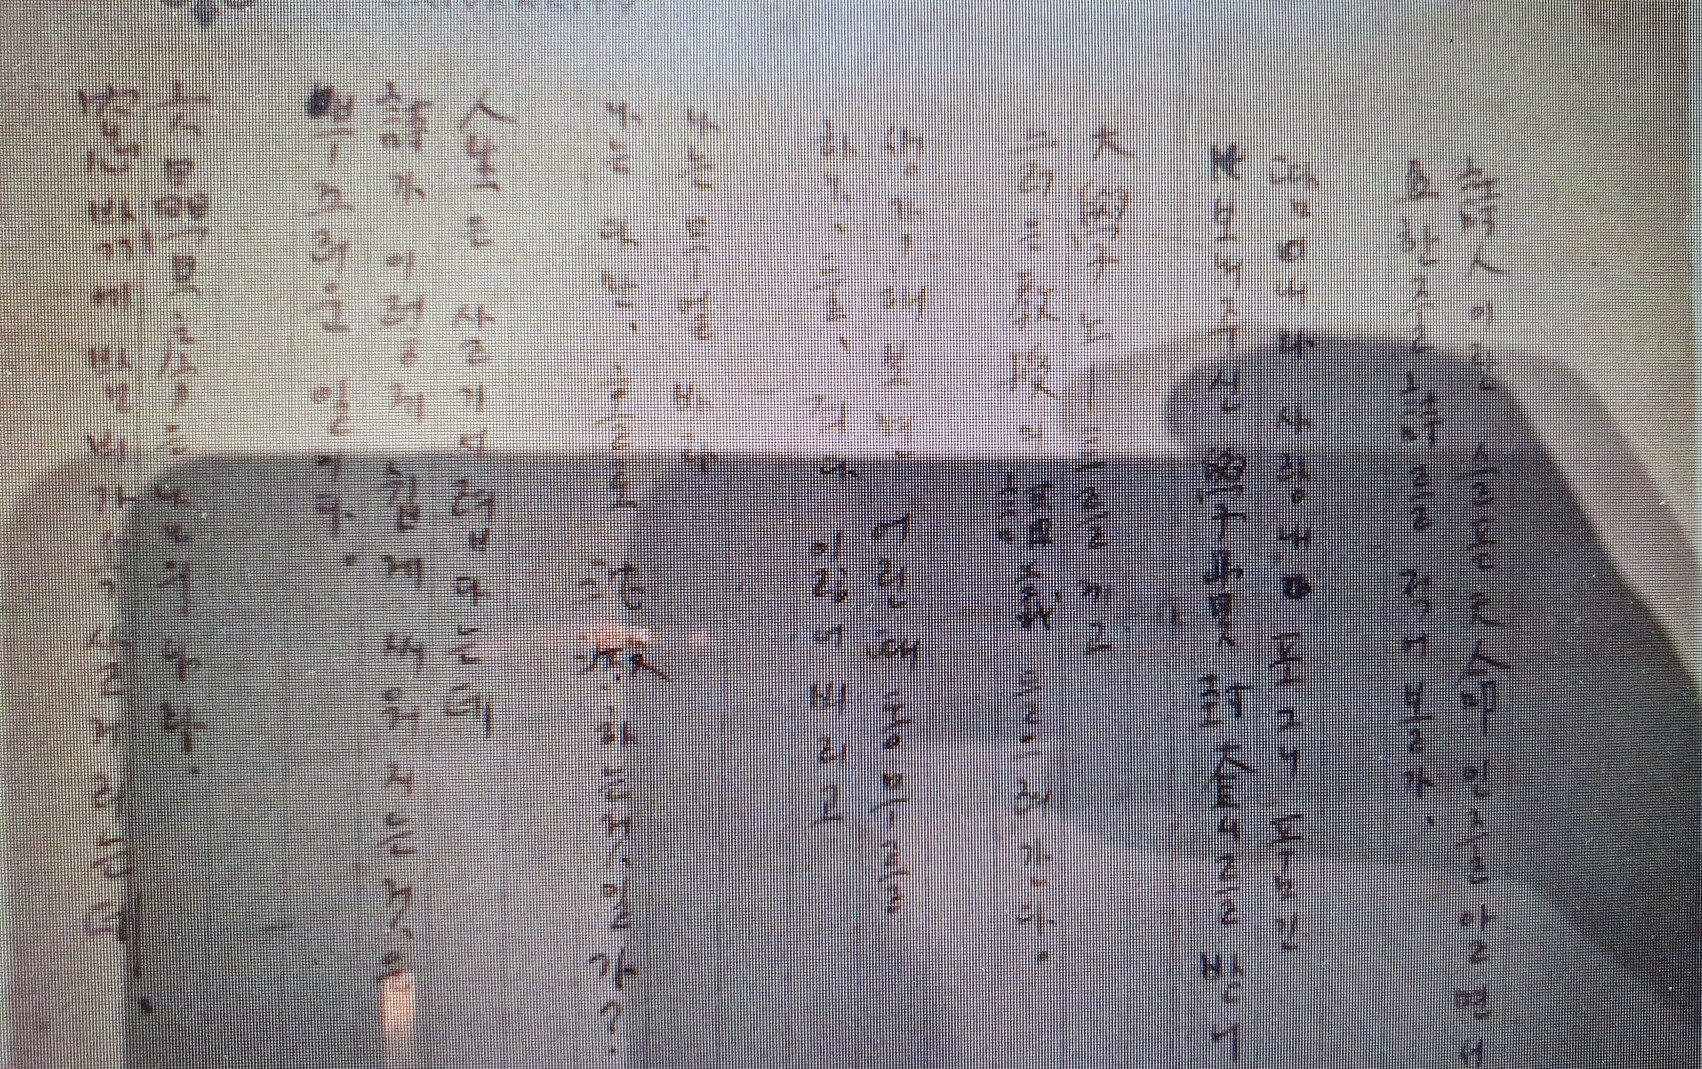 詩人이란 슬픈天命인줄알면서
도 한줄詩를 적어볼가,
땀내와 사랑내 포그니 품긴
보내주신 學費封套를받어
大學노―트를 끼고
늙은敎授의講義 들으려간다.
생각해보면 어린때동무를
하나, 둘, 죄다 잃어버리고
나는 무얼 바라
나는 다만, 홀로 沈澱하는것일가?
人生은 살기어렵다는데
詩가 이렇게 쉽게 씌워지는것은
부끄러운 일이다.
六疊房은남의나라.
窓밖에 밤비가속살거리는데,